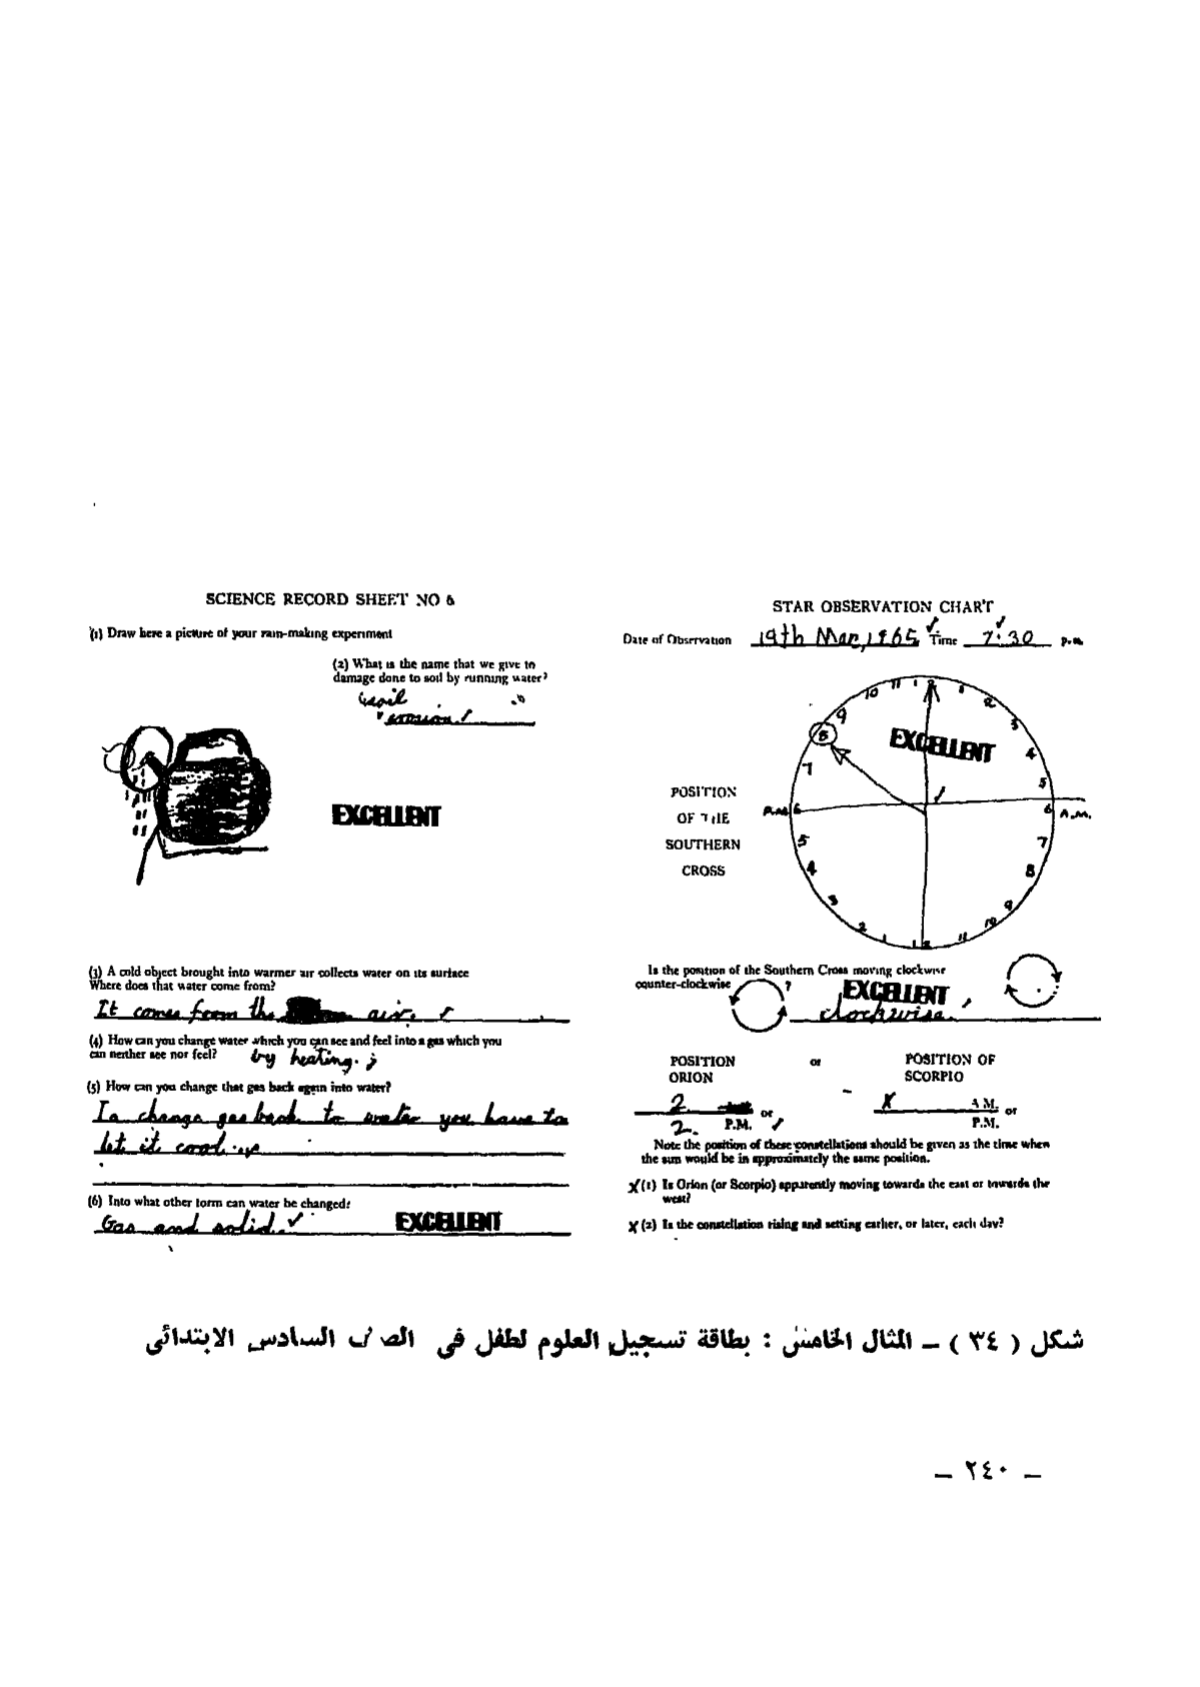 SCIENCE RECORD SHEET NO 6
(1) Draw here a picture of your rain-making experiment
(2) What is the name that we give to
damage done to soil by running water?
soil
erosion
EXCELLENT
(3) A cold object brought into warmer air collects water on its surface
Where does that water come from?
It comes from the air.
(4) How can you change water which you can see and feel into a gas which you
can neither see nor feel? by heating.
(5) How can you change that gas back again into water?
To change gas back to water you have to
let it cool
(6) Into what other form can water be changed?
Gas and solid. EXCELLENT
STAR OBSERVATION CHART
Date of Observation 19th Mar, 1965 Time 7.30 p.m.
11 12 1
10 2
9 3
8 EXCELLENT 4
7 5
POSITION
OF THE
SOUTHERN
CROSS
P.M. 6 6 A.M.
5 7
4 8
3 9
2 10
1 12 11
Is the position of the Southern Cross moving clockwise
counter-clockwise ? EXCELLENT
clockwise.
POSITION or POSITION OF
ORION SCORPIO
2 or x A.M. or
2. P.M. P.M.
Note the position of these constellations should be given as the time when
the sun would be in approximately the same position.
x (1) Is Orion (or Scorpio) apparently moving towards the east or towards the
west?
x (2) Is the constellation rising and setting earlier, or later, each day?
شكل ( ٣٤ ) ــ المثال الخامس : بطاقة تسجيل العلوم لطفل فى الصف السادس الابتدائى
ــ ٢٤٠ ــ